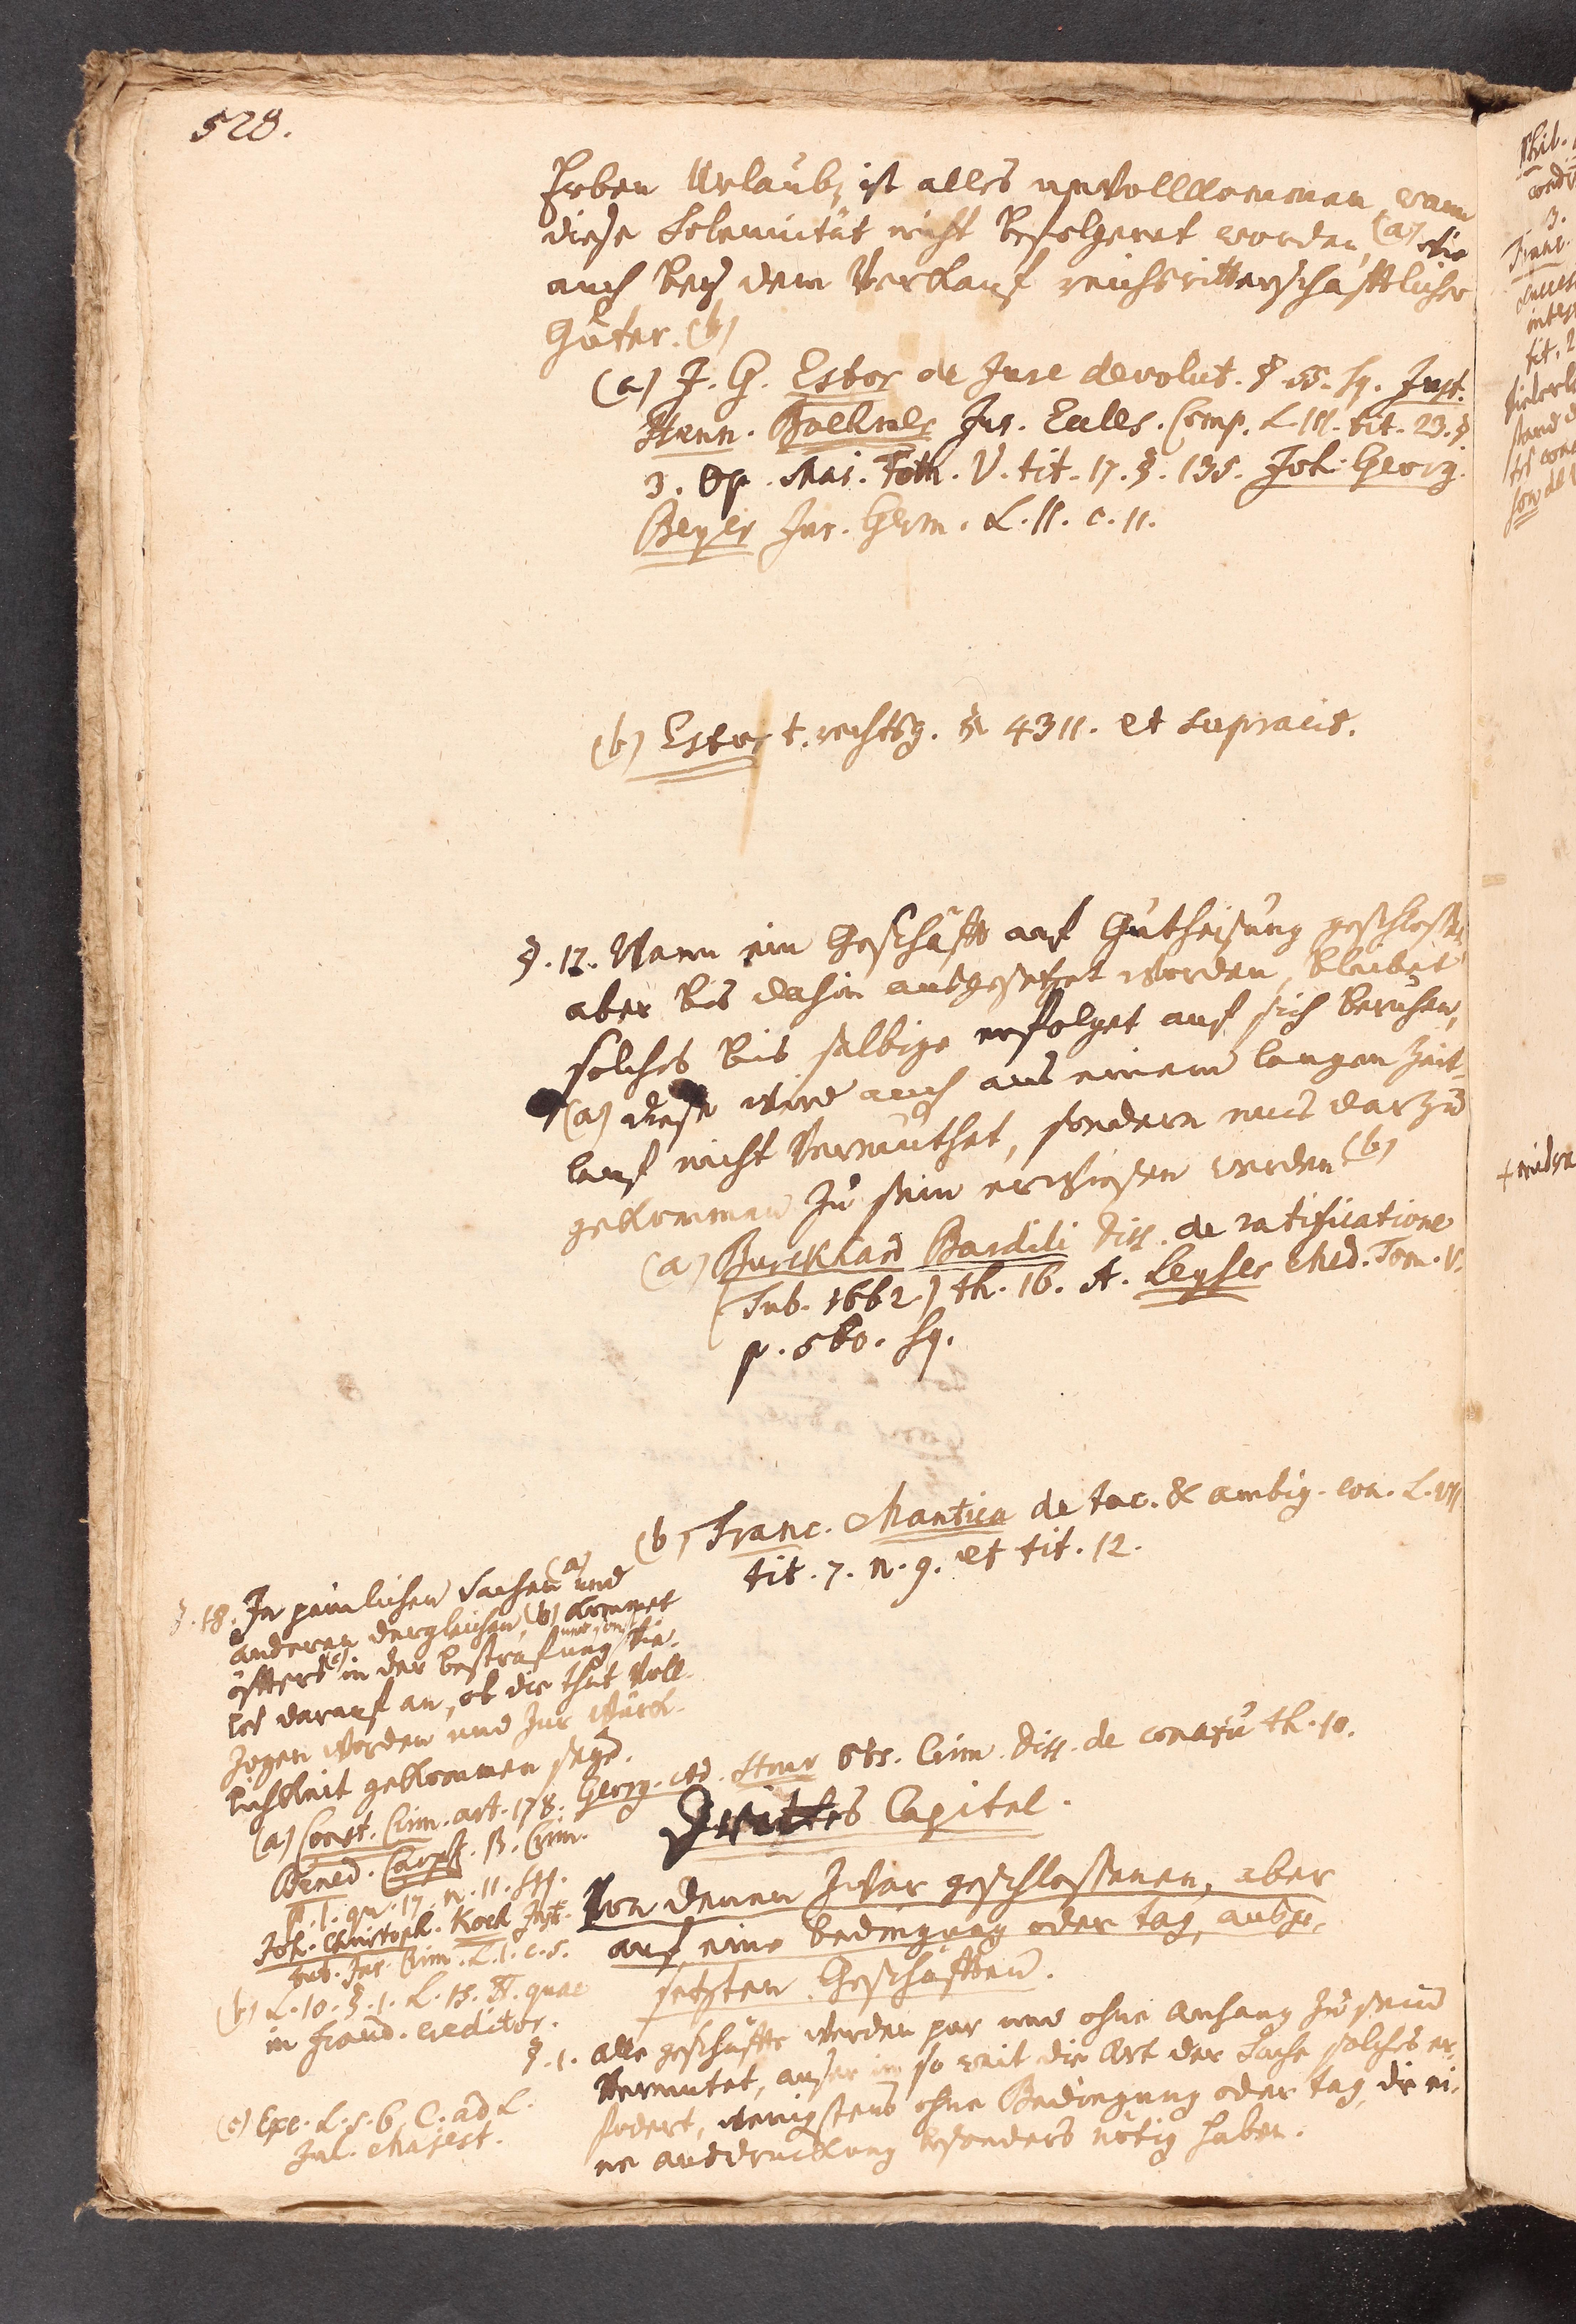 528.
Erben Urlaub, ist alles unvollkommen, wann
diese Solennität nicht befolgeret worden, (a) wie
auch bey dem Verkauf reichsritterschafftlicher
Güter. (b)
(a) J. G. Estor de Jure devolut. § 55. sq. Just.
Henn. Boehmer Jus. Eccles. Comp. L. III. tit. 23. §
3. Op. Maj. Tom. V. tit. 17. §. 135. Joh. Georg.
Beyer Jus. Germ. L. II. c. 11.
(b) Estor t. rechtsg. § 4311. et supra cit.
§. 17. Wann ein Geschäfft auf Gutheisung geschlossen
aber bis dahin ausgesetzet worden, bleibet
solches bis selbige erfolget auf sich beruhen,
(a) diese wird auch aus einem langen Zeit-
lauf nicht vermuthet, sondern mus darzu
gekommen zu sein erwiesen werden (b)
(a) Burckhard Bardili Diss. de ratificatione
(Tub. 1662.) th. 16. A. Leyser Med. Tom. V.
p. 560. sq.
(b) Franc. Mantica de tac. & ambig. con. L. VII
tit. 7. n. 9. et tit. 12.
§. 18. In peinlichen Sachen (a) und
anderen dergleichen, (b) kommet
öffters (c) in der bestrafung und sonst vie-
les darauf an, ob die that voll-
zogen worden und zur würck-
lichkeit gekommen seye.
(a) Const. Crim. art. 178. Georg. Ad. Struv Obs. Crim. Diss. de conatu th. 10.
Bened. Carpz. P. Crim.
P. I. qu. 17. n. 11. sqq.
Joh. Christoph. Koch Inst.
Jur. Crim. L. I. c. 5.
(b) L. 10. §. 1. L. 15. ff. quae
in fraud. creditor.
(c) Exc. L. 5. 6. C. ad L.
Jul. Majest.
Drittes Capitel.
Von denen zwar geschlossenen, aber
auf eine bedingung oder tag, ausge-
setzten Geschäfften.
§. 1. Alle geschäffte werden pur und ohne anhang zu sein
vermutet, auser in so weit die Art der Sache solches er-
fodert, wenigstens ohne Bedingung oder tag, die ei-
ne ausdruckung besonders nötig haben.